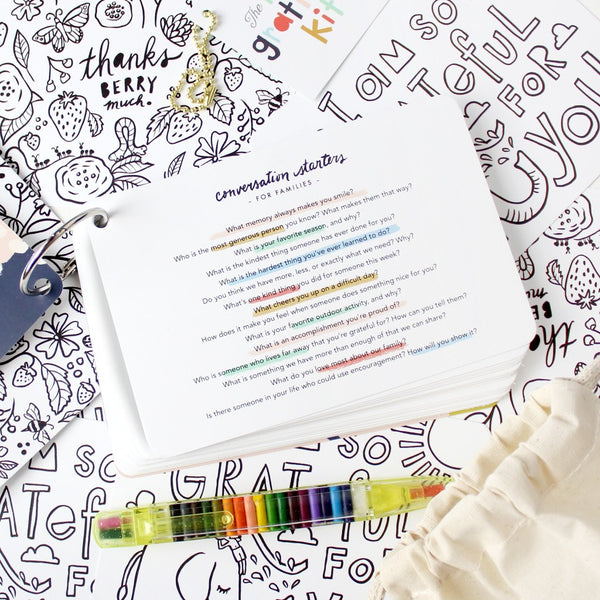 The
grati
kit
thanks
BERRY
much.
I AM SO
GRATEFUL
FOR
you
conversation starters
- FOR FAMILIES -
What memory always makes you smile?
Who is the most generous person you know? What makes them that way?
What is your favorite season, and why?
What is the kindest thing someone has ever done for you?
What is the hardest thing you've ever learned to do?
Do you think we have more, less, or exactly what we need? Why?
What's one kind thing you did for someone this week?
What cheers you up on a difficult day?
How does it make you feel when someone does something nice for you?
What is your favorite outdoor activity, and why?
What is an accomplishment you're proud of?
Who is someone who lives far away that you're grateful for? How can you tell them?
What is something we have more than enough of that we can share?
What do you love most about our family? How will you show it?
Is there someone in your life who could use encouragement?
I AM SO
GRATEFUL
FOR
GRAT
FUL
FOR